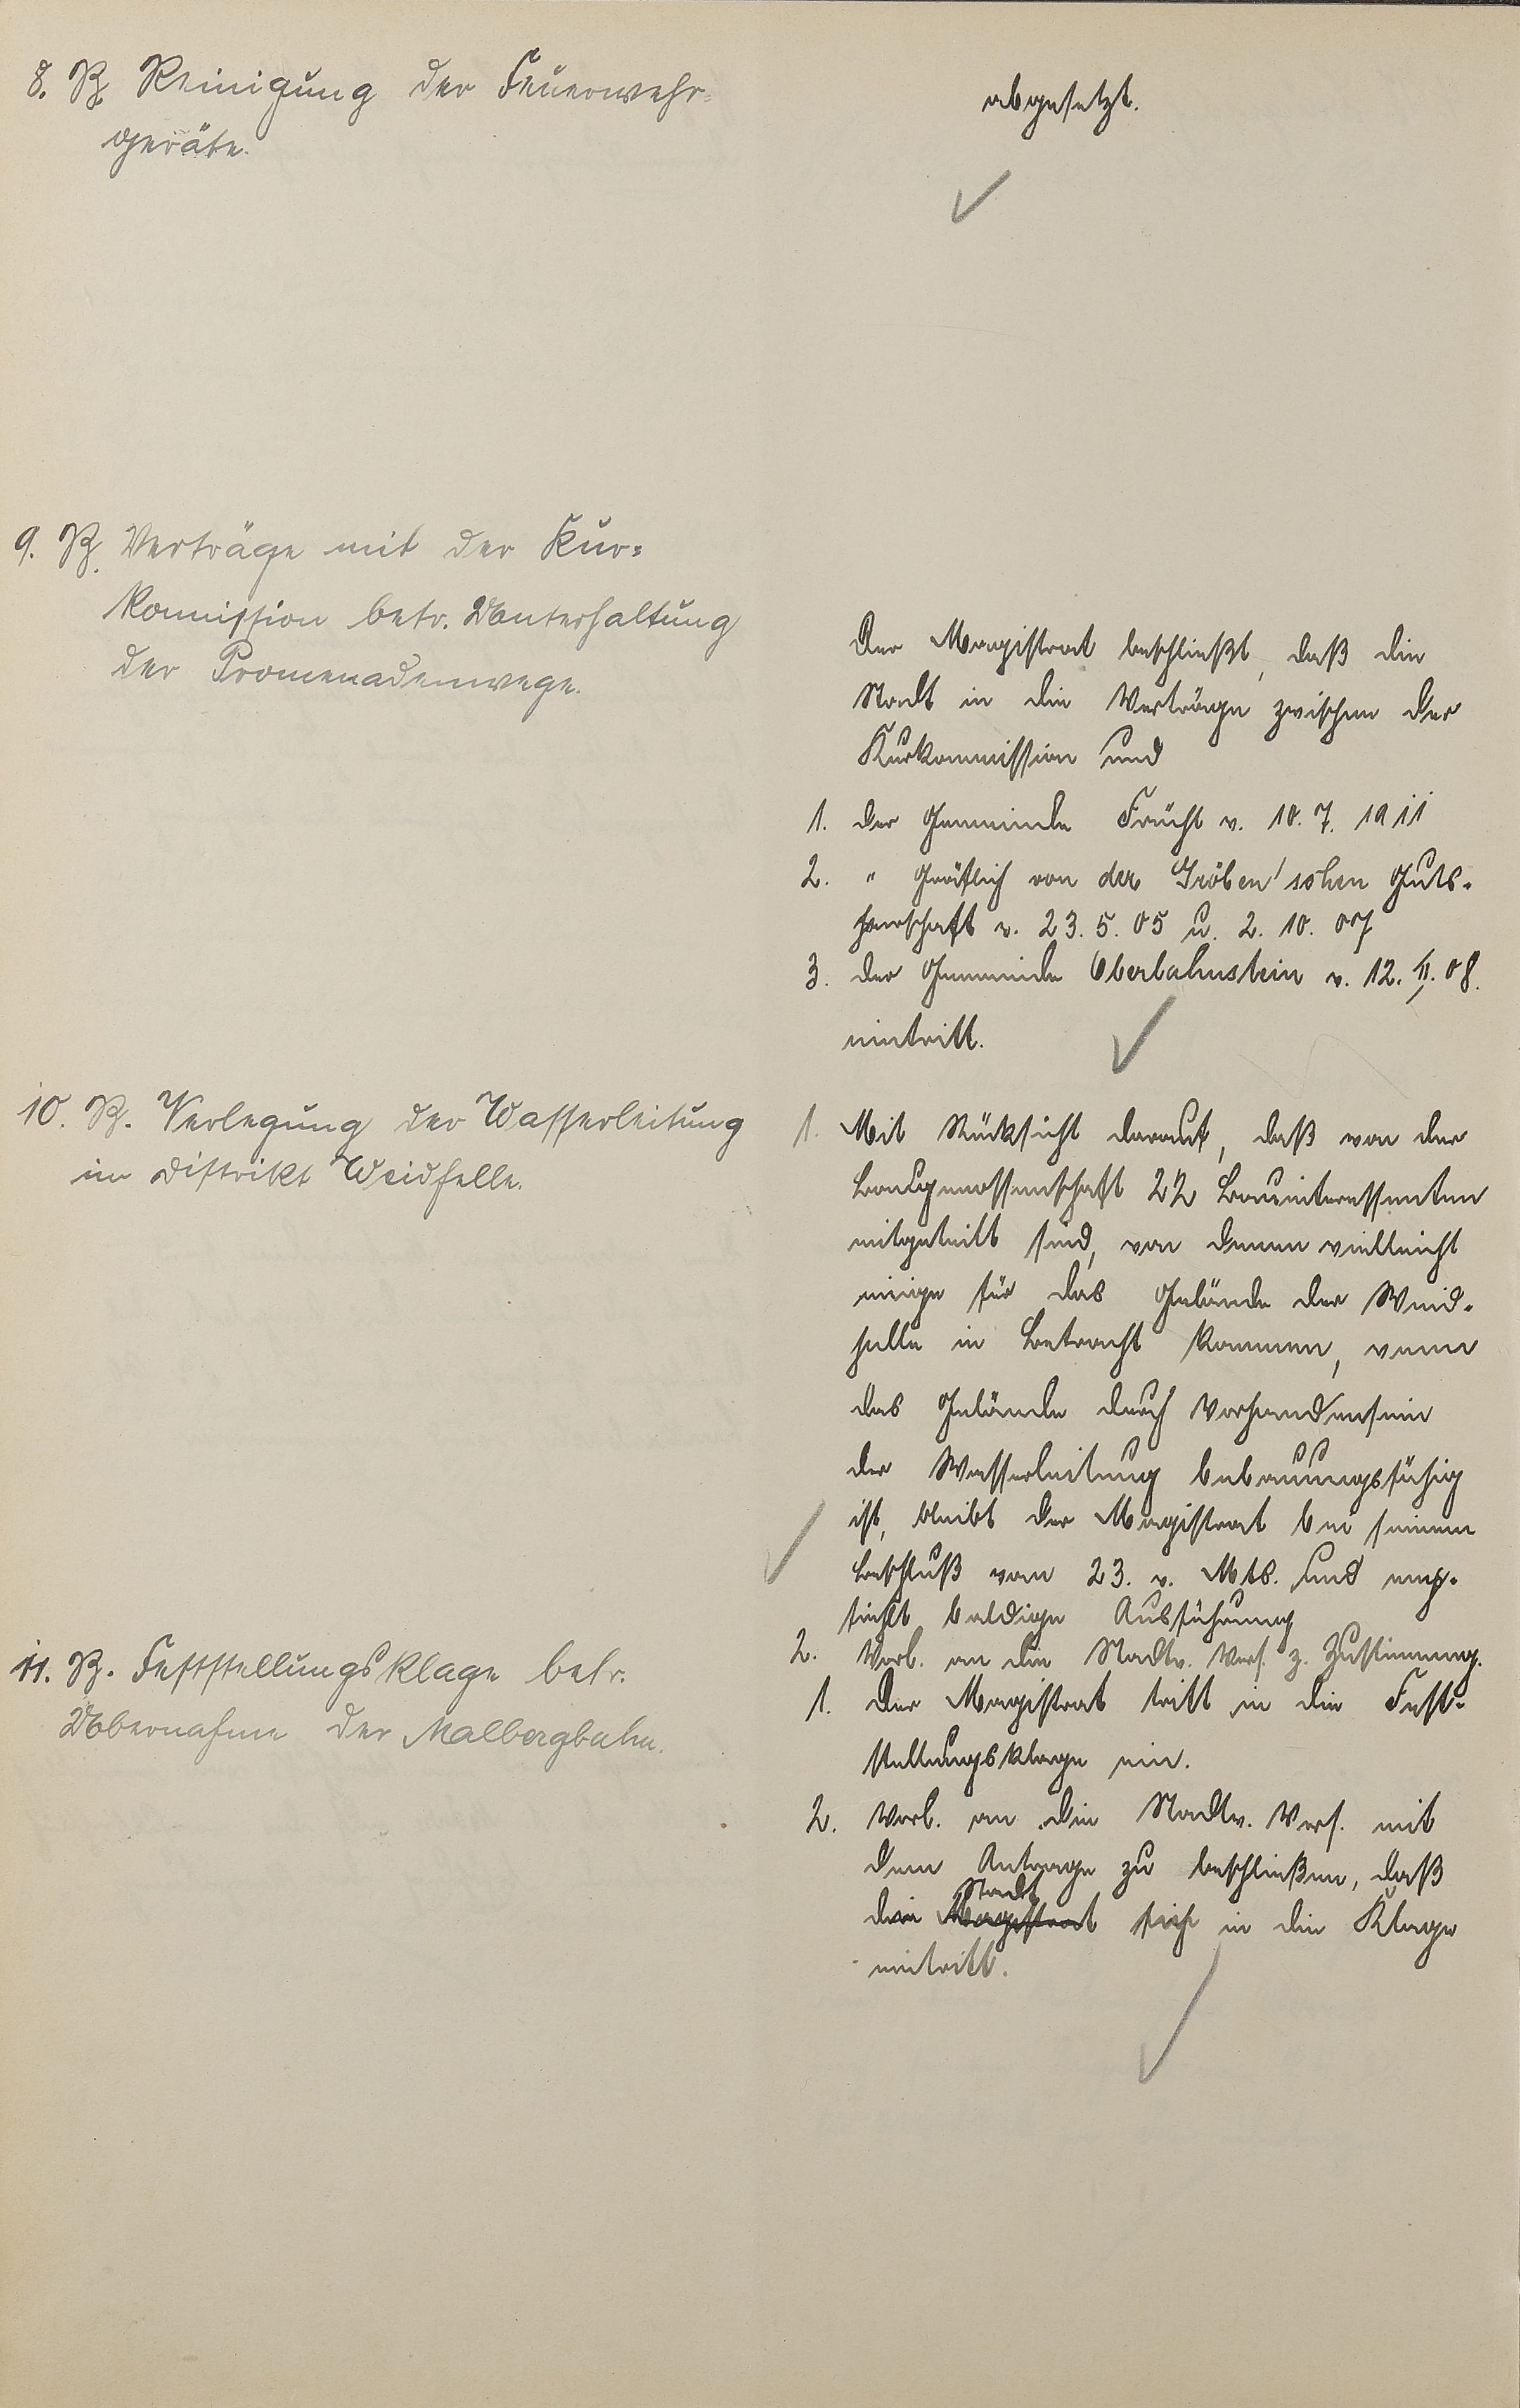 8. B. Reinigung der Feuerwehr-
geräte.
abgesetzt.
9. B. Verträge mit der Kur-
kommission betr. Unterhaltung
der Promenadenwege.
Der Magistrat beschließt, daß die
Stadt in die Verträge zwischen der
Kurkommission und
1. der Gemeinde Frücht v. 10. 7. 1911
2. " Gräflich von der Gröben'schen Guts-
herrschaft v. 23. 5. 05 u. 2. 10. 07
3. der Gemeinde Oberlahnstein v. 12. II. 08.
eintritt.
10. B. Verlegung der Wasserleitung
im Distrikt Weidhelle.
1. Mit Rücksicht darauf, daß von der
Baugenossenschaft 22 Bauinteressenten
mitgeteilt sind, von denen vielleicht
einige für das Gelände der Weid-
helle in Betracht kommen, wenn
das Gelände durch Vorhandensein
der Wasserleitung bebauungsfähig
ist, bleibt der Magistrat bei seinem
Beschluß vom 23. v. Mts. und emp-
fiehlt baldige Ausführung
2. Vorl. an die Stadtv. Vers. z. Zustimmung.
11. B. Feststellungsklage betr.
Übernahme der Malbergbahn.
1. Der Magistrat tritt in die Fest-
stellungsklage ein.
2. Vorl. an die Stadtv. Vers. mit
dem Antrage zu beschließen, daß
Stadt
die Magistrat sich in die Klage
eintritt.